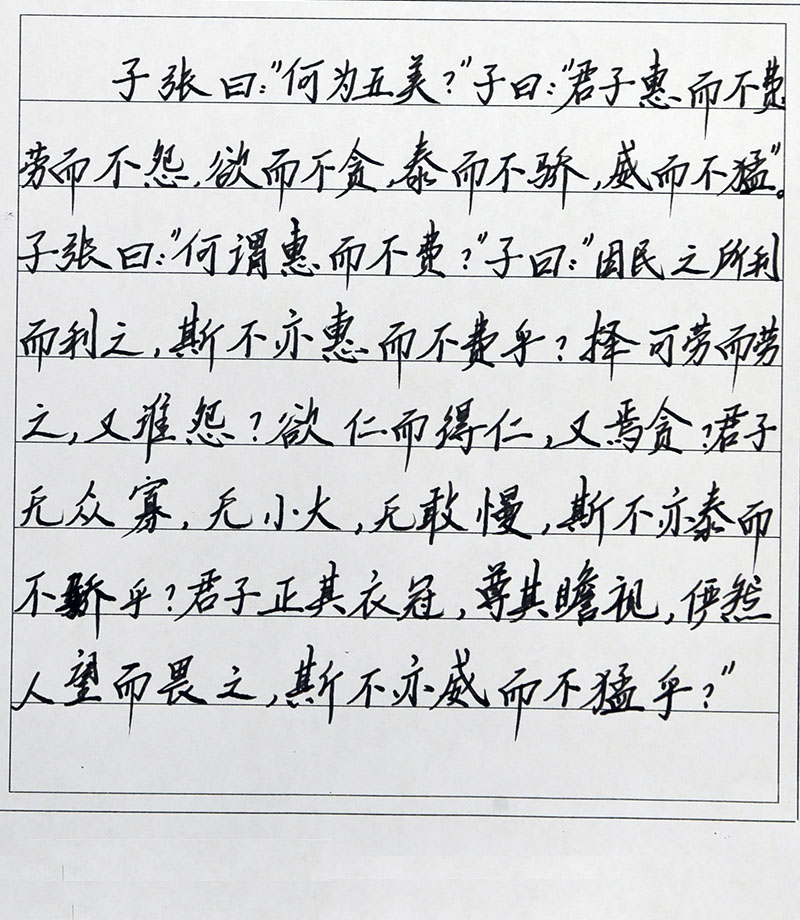 子张曰:"何为五美?"子曰:"君子惠而不费
劳而不怨,欲而不贪,泰而不骄,威而不猛"。
子张曰:"何谓惠而不费?"子曰:"因民之所利
而利之,斯不亦惠而不费乎?择可劳而劳
之,又谁怨?欲仁而得仁,又焉贪?君子
无众寡,无小大,无敢慢,斯不亦泰而
不骄乎?君子正其衣冠,尊其瞻视,俨然
人望而畏之,斯不亦威而不猛乎?"